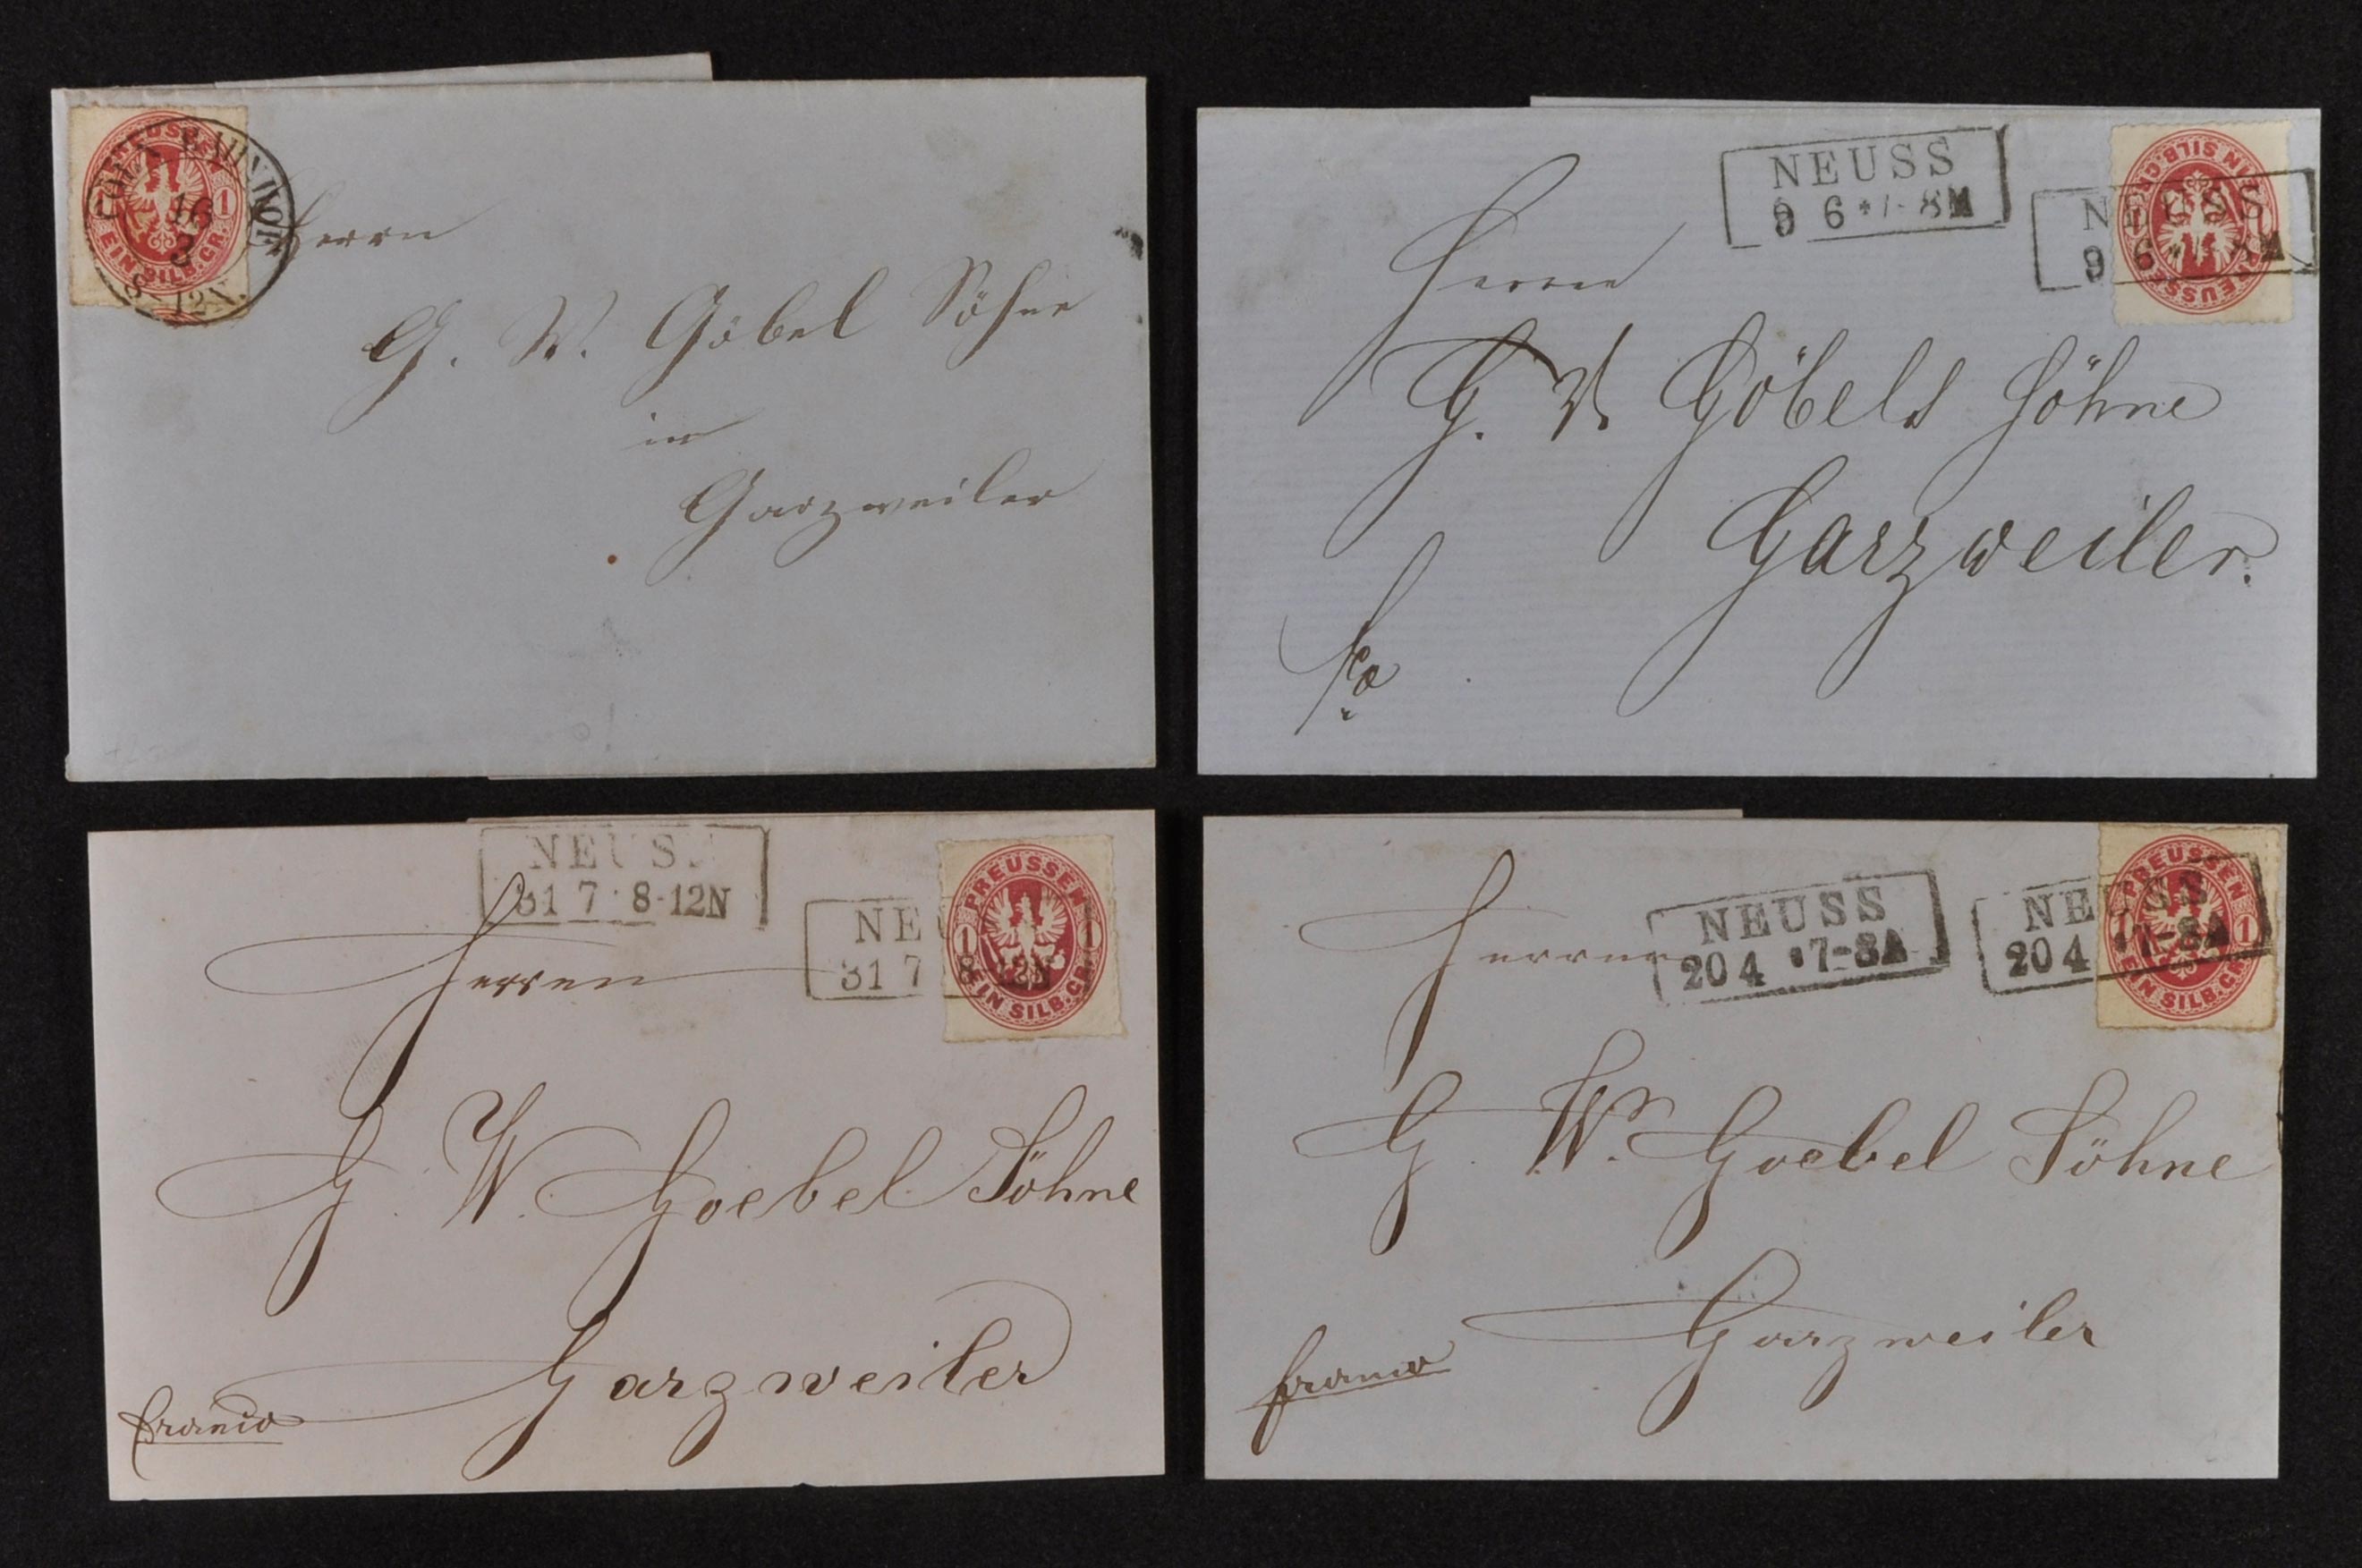 PREUSSEN
1
EIN SILB.GR.
BAHNHOF
16
3
8-12N.
Herrn
G. W. Göbel Söhne
in
Garzweiler
NEUSS
9 6 7-8M
PREUSSEN
EIN SILB.GR.
NEUSS
9 6
Herrn
G. W. Göbels Söhne
Garzweiler.
fco
NEUS
31 7 8-12N
PREUSSEN
1 1
EIN SILB.GR.
NE
31 7 8 12N
Herren
G. W. Goebel Söhne
Garzweiler
franco
NEUSS
20 4 7-8A
PREUSSEN
1
EIN SILB.GR.
NEUSS
20 4 7-8A
Herren
G. Wm. Goebel Söhne
Garzweiler
franco